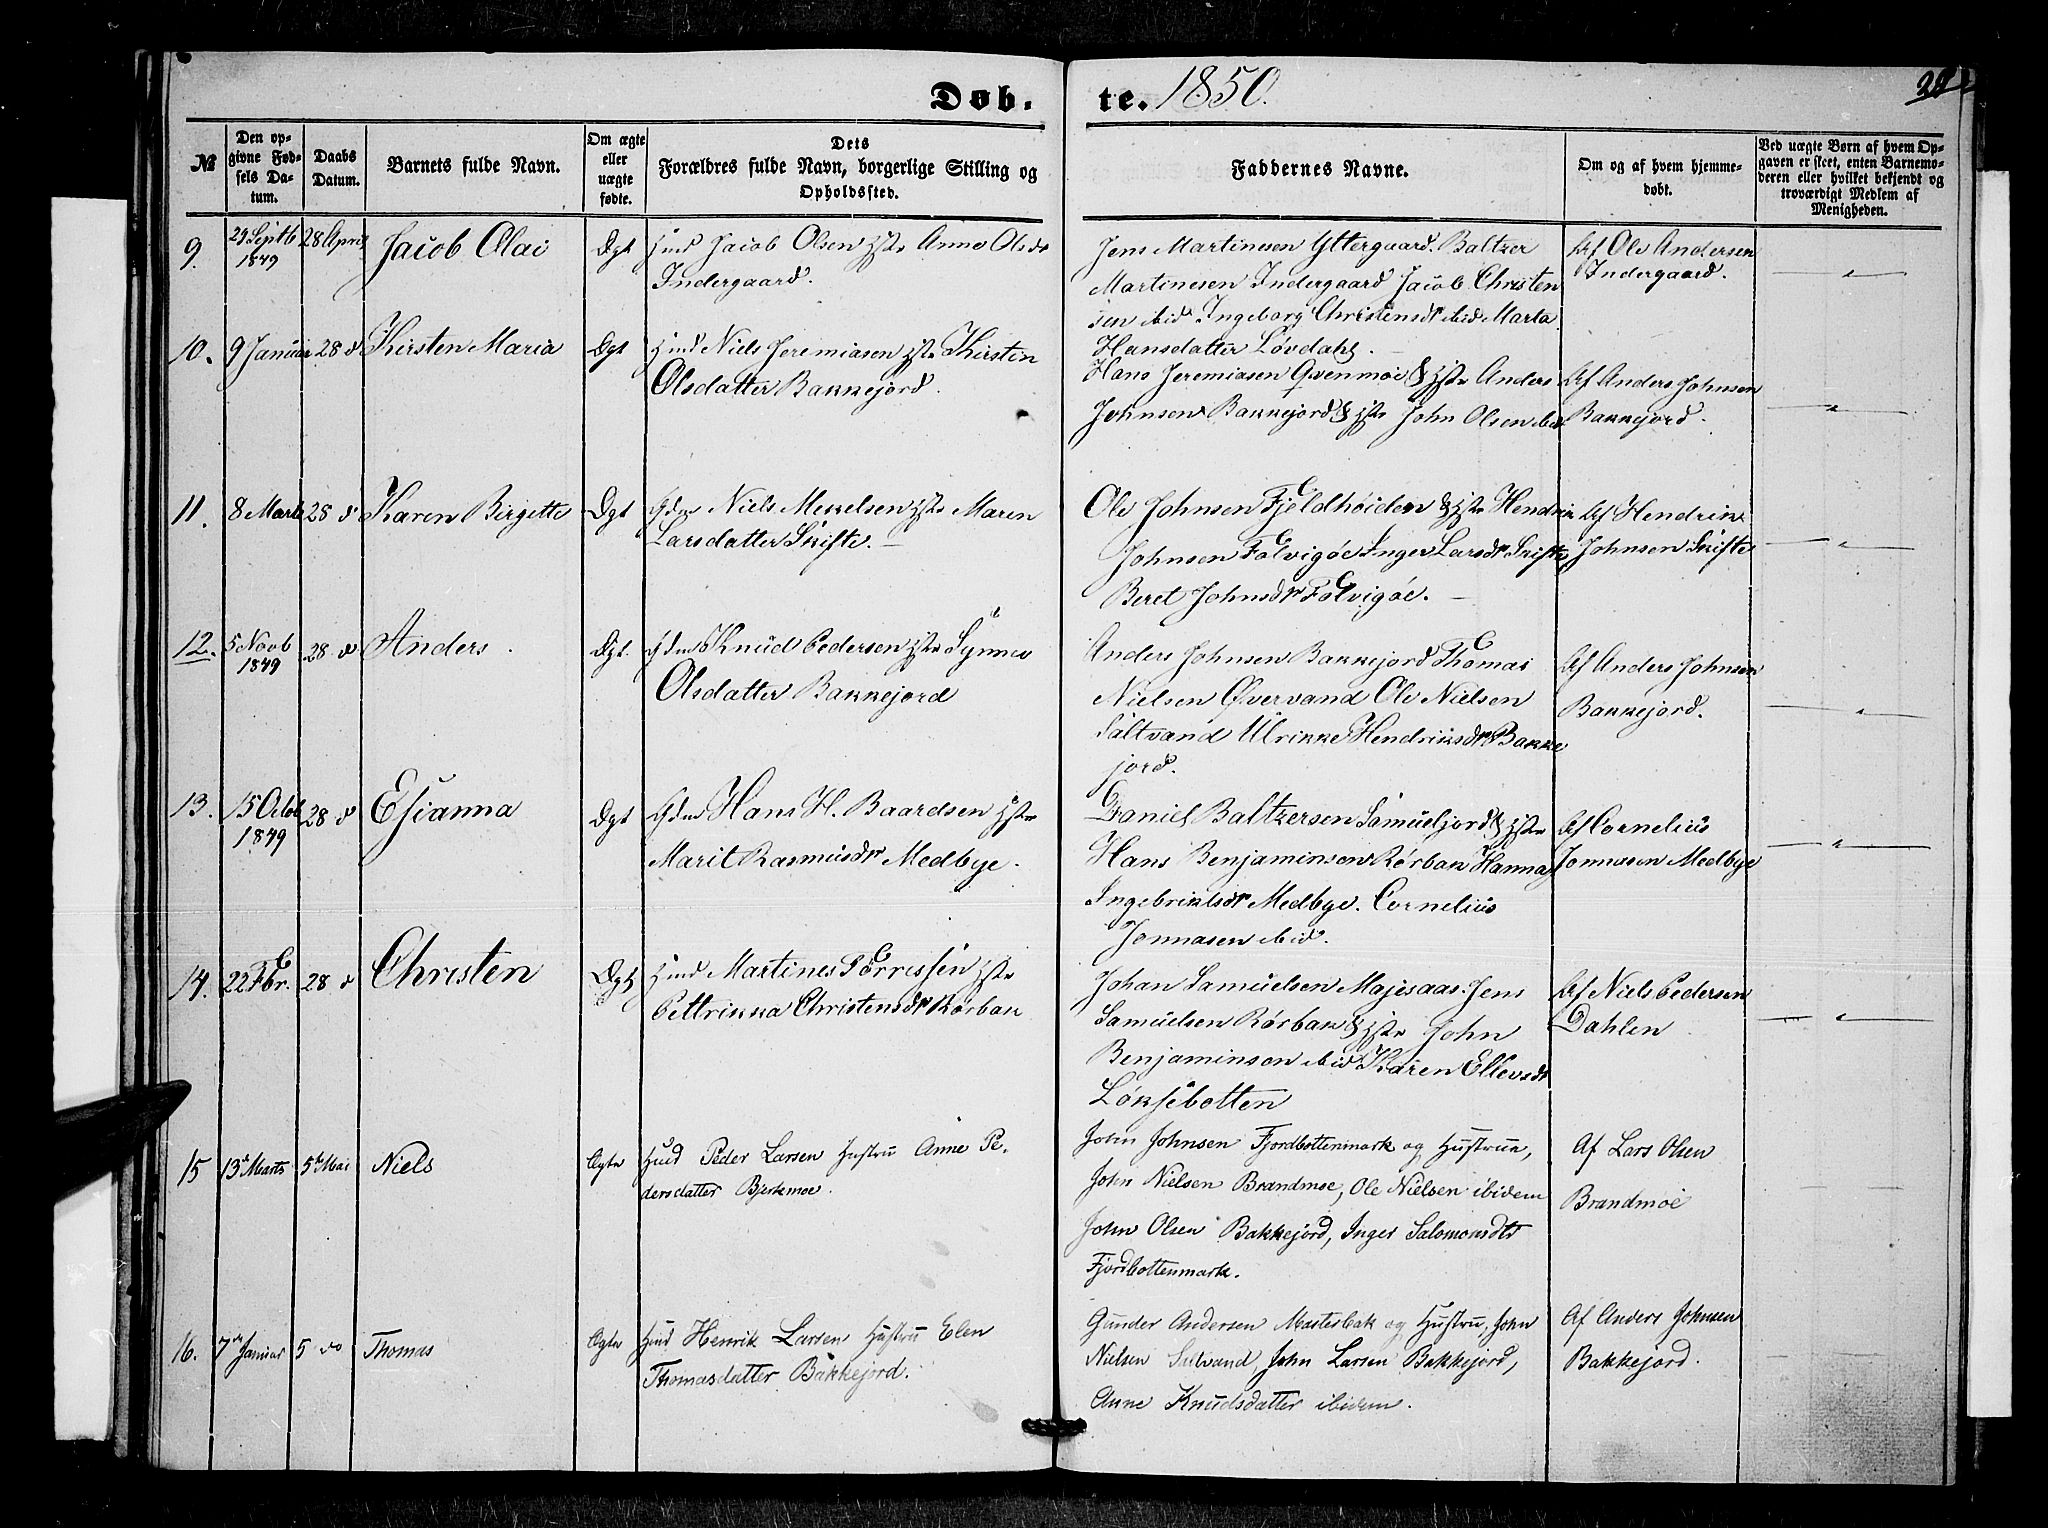 Døb-
te. 1850.
№
Den op-
givne Fød-
sels Da-
tum.
Daabs
Datum.
Barnets fulde Navn.
Om ægte
eller
uægte
fødte.
Dets
Forældres fulde Navn, borgerlige Stilling og
Opholdssted.
Faddernes Navne.
Om og af hvem hjemme-
døbt.
Ved uægte Børn af hvem Op-
gaven er skeet, enten Barnemo-
deren eller hvilket bekjendt og
troværdigt Medlem af
Menigheden.
9.
29 Septb
1849
28 April
Jacob Olai
Ægt
Hmd Jacob Olsen Hst Anne Olsdr
Indergaard.
Jens Martinesen Yttergaard. Baltzer
Martinesen Indergaard Jacob Christen
sen ibid. Ingeborg Christensdr ibid Marta
Hansdatter Løvdahl.
Af Ole Andersen
Indergaard.
10.
9 Januar
28 d
Kirsten Maria
Ægt
Hmd Niels Jeremiasen Hst Kirsten
Olsdatter Bakkejord.
Hans Jeremiasen Qvenmoe & Hst Anders
Johnsen Bakkejord & Hst John Olsen ibid
Af Anders Johnsen
Bakkejord.
11.
8 Marts
28 d
Karen Birgette
Ægt
Gdm Niels Mekkelsen Hst Maren
Larsdatter Skifte.
Ole Johnsen Fjeldhøiden & Hst Hendrik
Johnsen Følvigøe Inger Larsdr Skifte
Beret Johnsdr Følvigøe.
Af Hendrik
Johnsen Skifte
12.
5 Novb
1849
28 d
Anders.
Ægt.
Gdm Knud Pedersen Hst Synnev
Olsdatter Bakkejord
Anders Johnsen Bakkejord Thomas
Nielsen Øvervand Ole Nielsen
Saltvand Ulrikke Hendriksdr Bakke
jord.
Af Anders Johnsen
Bakkejord.
13.
15 Octob
1849
28 d
Esianna
Ægt
Gdm Hans H. Baardsen Hst
Marit Rasmusdr Medbye.
Daniel Baltzersen Samueljord & Hst
Hans Benjaminsen Rørbak Hanna
Ingebriktsdr Medbye. Cornelius
Jonnasen ibid.
Af Cornelius
Jonnasen Medbye
14.
22 Fbr.
28 d
Christen
Ægt
Hmd Martines Torressen Hst
Pettrikka Christensdr Rørbak
Johan Samuelsen Majesaas. Jens
Samuelsen Rørbak & Hst John
Benjaminsen ibid Karen Ellevsdr
Løksebotten
Af Niels Pedersen
Dahlen
15
13 Marts
5te Mai
Niels
Ægte
Hmd Peder Larsen Hustru Anne Pe-
dersdatter Bjerkmoe.
John Johnsen Fjordbottenmark og Hustrue,
John Nielsen Brandmoe, Ole Nielsen ibidem
John Olsen Bakkejord, Inger Salomonsdtr
Fjordbottenmark.
Af Lars Olsen
Brandmoe
16.
7de Januar
5 do
Thomas
Ægte
Hmd Henrik Larsen Hustru Elen
Thomasdatter Bakkejord.
Gunder Andersen Masterbak og Hustru, John
Nielsen Saltvand, John Larsen Bakkejord,
Anne Knudsdatter ibidem.
Af Anders Johnsen
Bakkejord.